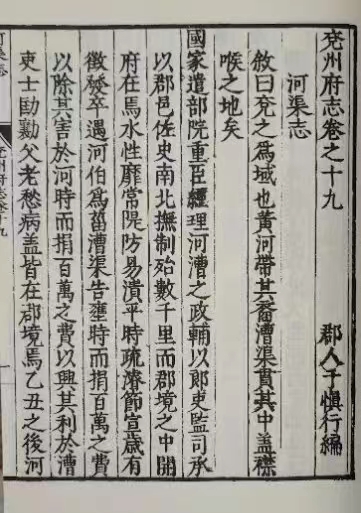 兖州府志卷之十九
郡人于慎行編
河渠志
敘曰兖之為域也黄河帶其裔漕渠貫其中盖襟
喉之地矣
國家遣部院重臣經理河漕之政輔以郎吏監司承
以郡邑佐史南北撫制殆數千里而郡境之中開
府在焉水性靡常隄防易潰平時疏濬節宣歳有
徵發卒遇河伯為菑漕渠告壅時而捐百萬之費
以除其害於河時而捐百萬之費以興其利於漕
吏士勛勷父老愁病盖皆在郡境焉乙丑之後河